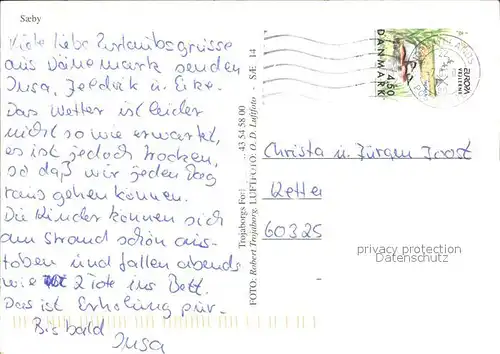 Sæby
Viele liebe Urlaubsgrüsse
aus Dänemark senden
Insa, Jendrik u. Eike.
Das Wetter ist leider
nicht so wie erwartet,
es ist jedoch trocken,
so daß wir jeden Tag
raus gehen können.
Die Kinder können sich
am Strand schön aus-
toben und fallen abends
wie 2 Tote ins Bett.
Das ist Erholung pur.
Bis bald
Insa
Trojaborgs Forl 43 54 58 00
FOTO: Robert Trojaborg. LUFTFOTO: O. D. Luftfoto - SÆ 14
DANMARK
4,50
EUROPA
Christa u. Jürgen Joost
60325
privacy protection
Datenschutz